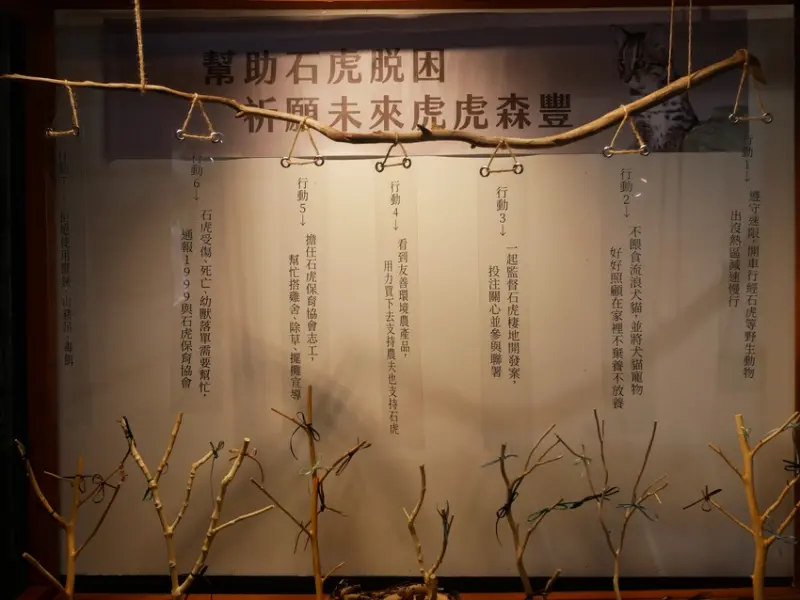 幫助石虎脫困
祈願未來虎虎森豐
行動1→
遵守速限，開車行經石虎等野生動物
出沒熱區減速慢行
行動2→
不餵食流浪犬貓，並將犬貓寵物
好好照顧在家裡不棄養不放養
行動3→
一起監督石虎棲地開發案，
投注關心並參與聯署
行動4→
看到友善環境農產品，
用力買下去支持農夫也支持石虎
行動5→
擔任石虎保育協會志工，
幫忙搭雞舍、除草、擺攤宣導
行動6→
石虎受傷、死亡、幼獸落單需要幫忙，
通報1999與石虎保育協會
行動7→
拒絕使用獸鋏、山豬吊、毒餌